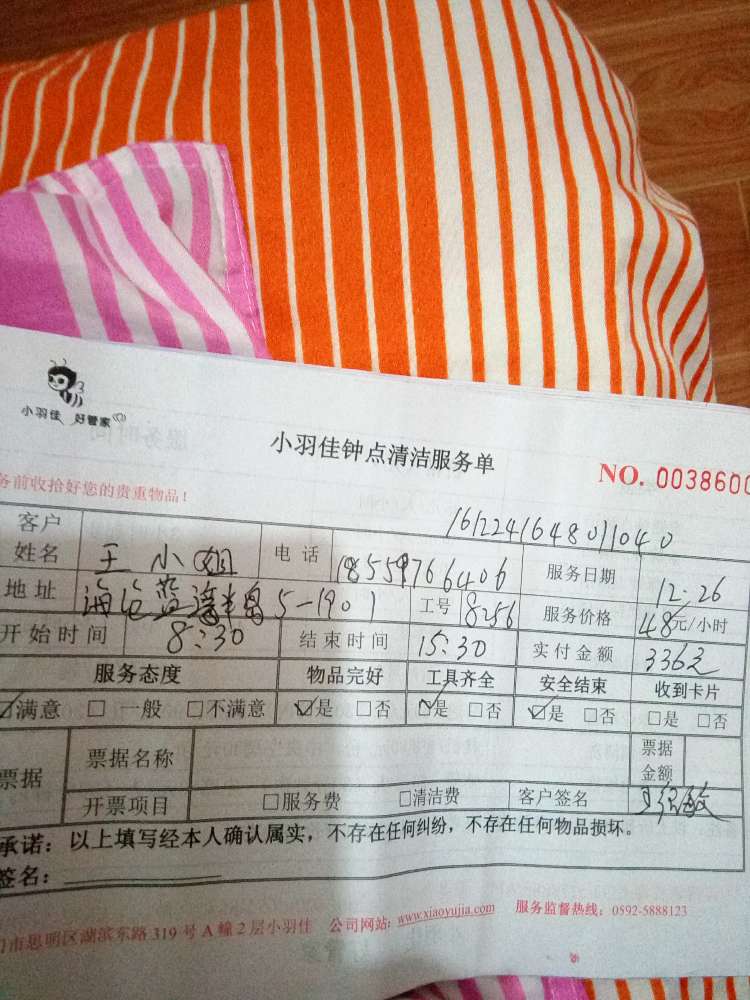 小羽佳 好管家
小羽佳钟点清洁服务单
NO. 0038600
务前收拾好您的贵重物品！
1612241648011040
客户姓名 王小姐 电话 18559766406 服务日期 12.26
地址 5-1901 工号 18256 服务价格 48元/小时
开始时间 8:30 结束时间 15:30 实付金额 336元
服务态度 物品完好 工具齐全 安全结束 收到卡片
☑满意 □一般 □不满意 ☑是 □否 ☑是 □否 ☑是 □否 □是 □否
票据 票据名称 票据金额
开票项目 □服务费 □清洁费 客户签名
承诺：以上填写经本人确认属实，不存在任何纠纷，不存在任何物品损坏。
签名：
门市思明区湖滨东路319号A幢2层小羽佳 公司网站：www.xiaoyujia.com 服务监督热线：0592-5888123